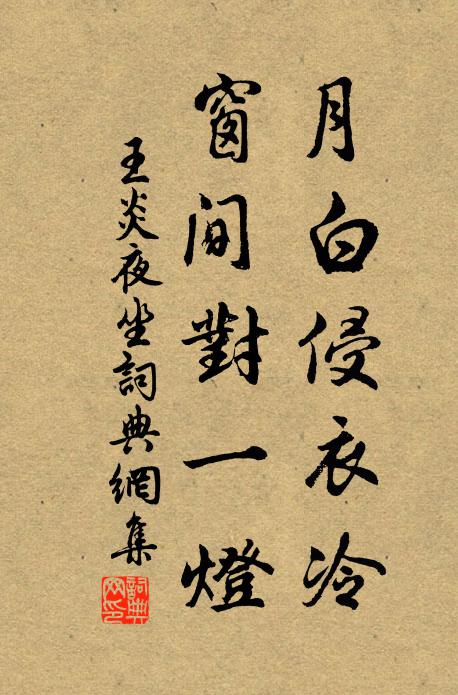 月白侵衣冷
窗間對一燈
王炎夜坐詞典網集
詞典網印